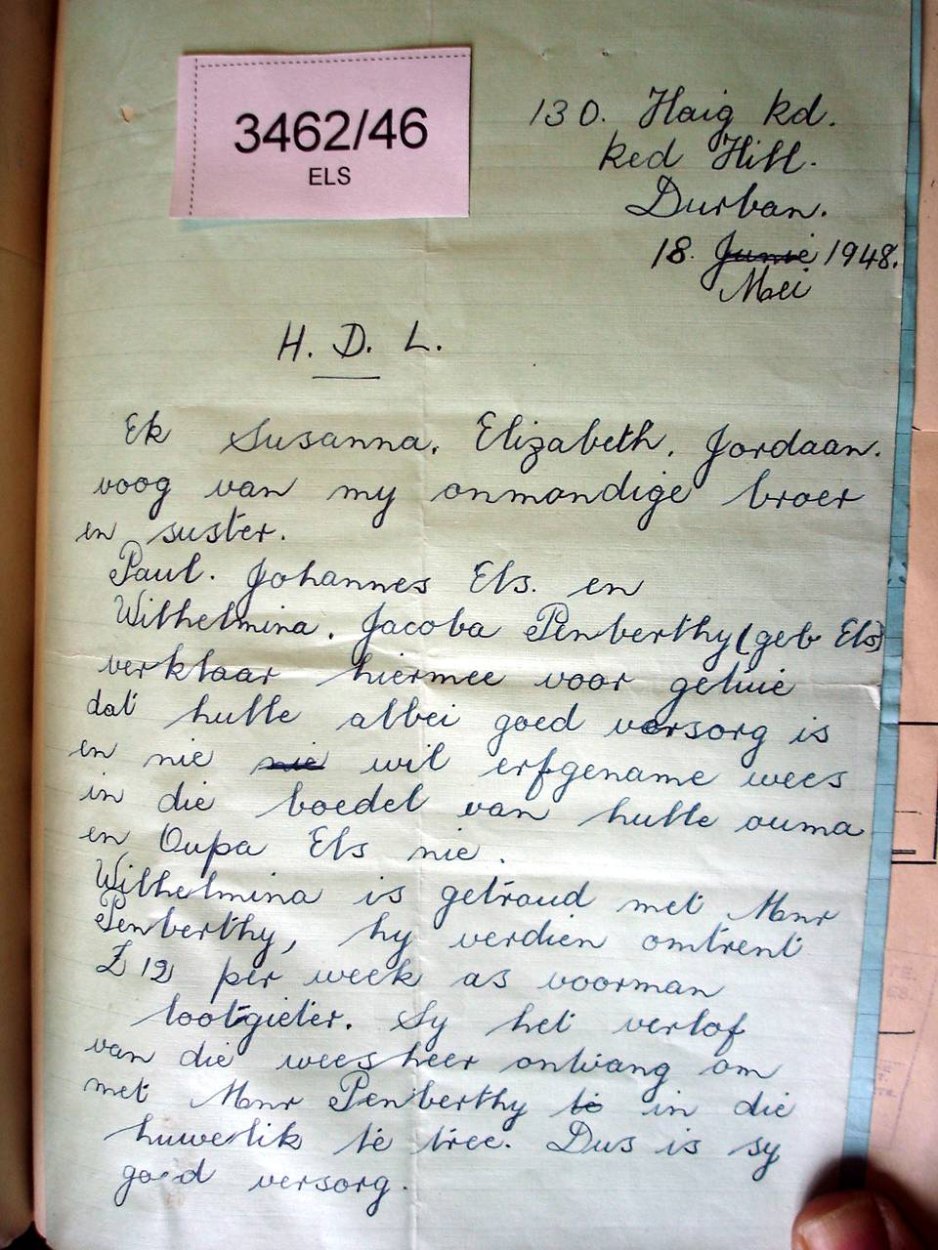 3462/46
ELS
130. Haig Rd.
Red Hill.
Durban.
18. Junie 1948.
Mei
H. D. L.
Ek Susanna. Elizabeth. Jordaan.
voog van my onmondige broer
en suster.
Paul. Johannes Els. en
Wilhelmina. Jacoba Penberthy (geb Els)
verklaar hiermee voor getuie
dat hulle albei goed versorg is
en nie nie wil erfgename wees
in die boedel van hulle ouma
en Oupa Els nie.
Wilhelmina is getroud met Mnr
Penberthy, hy verdien omtrent
£ 12 per week as voorman
lootgieter. Sy het verlof
van die weesheer ontvang om
met Mnr Penberthy te in die
huwelik te tree. Dus is sy
goed versorg.